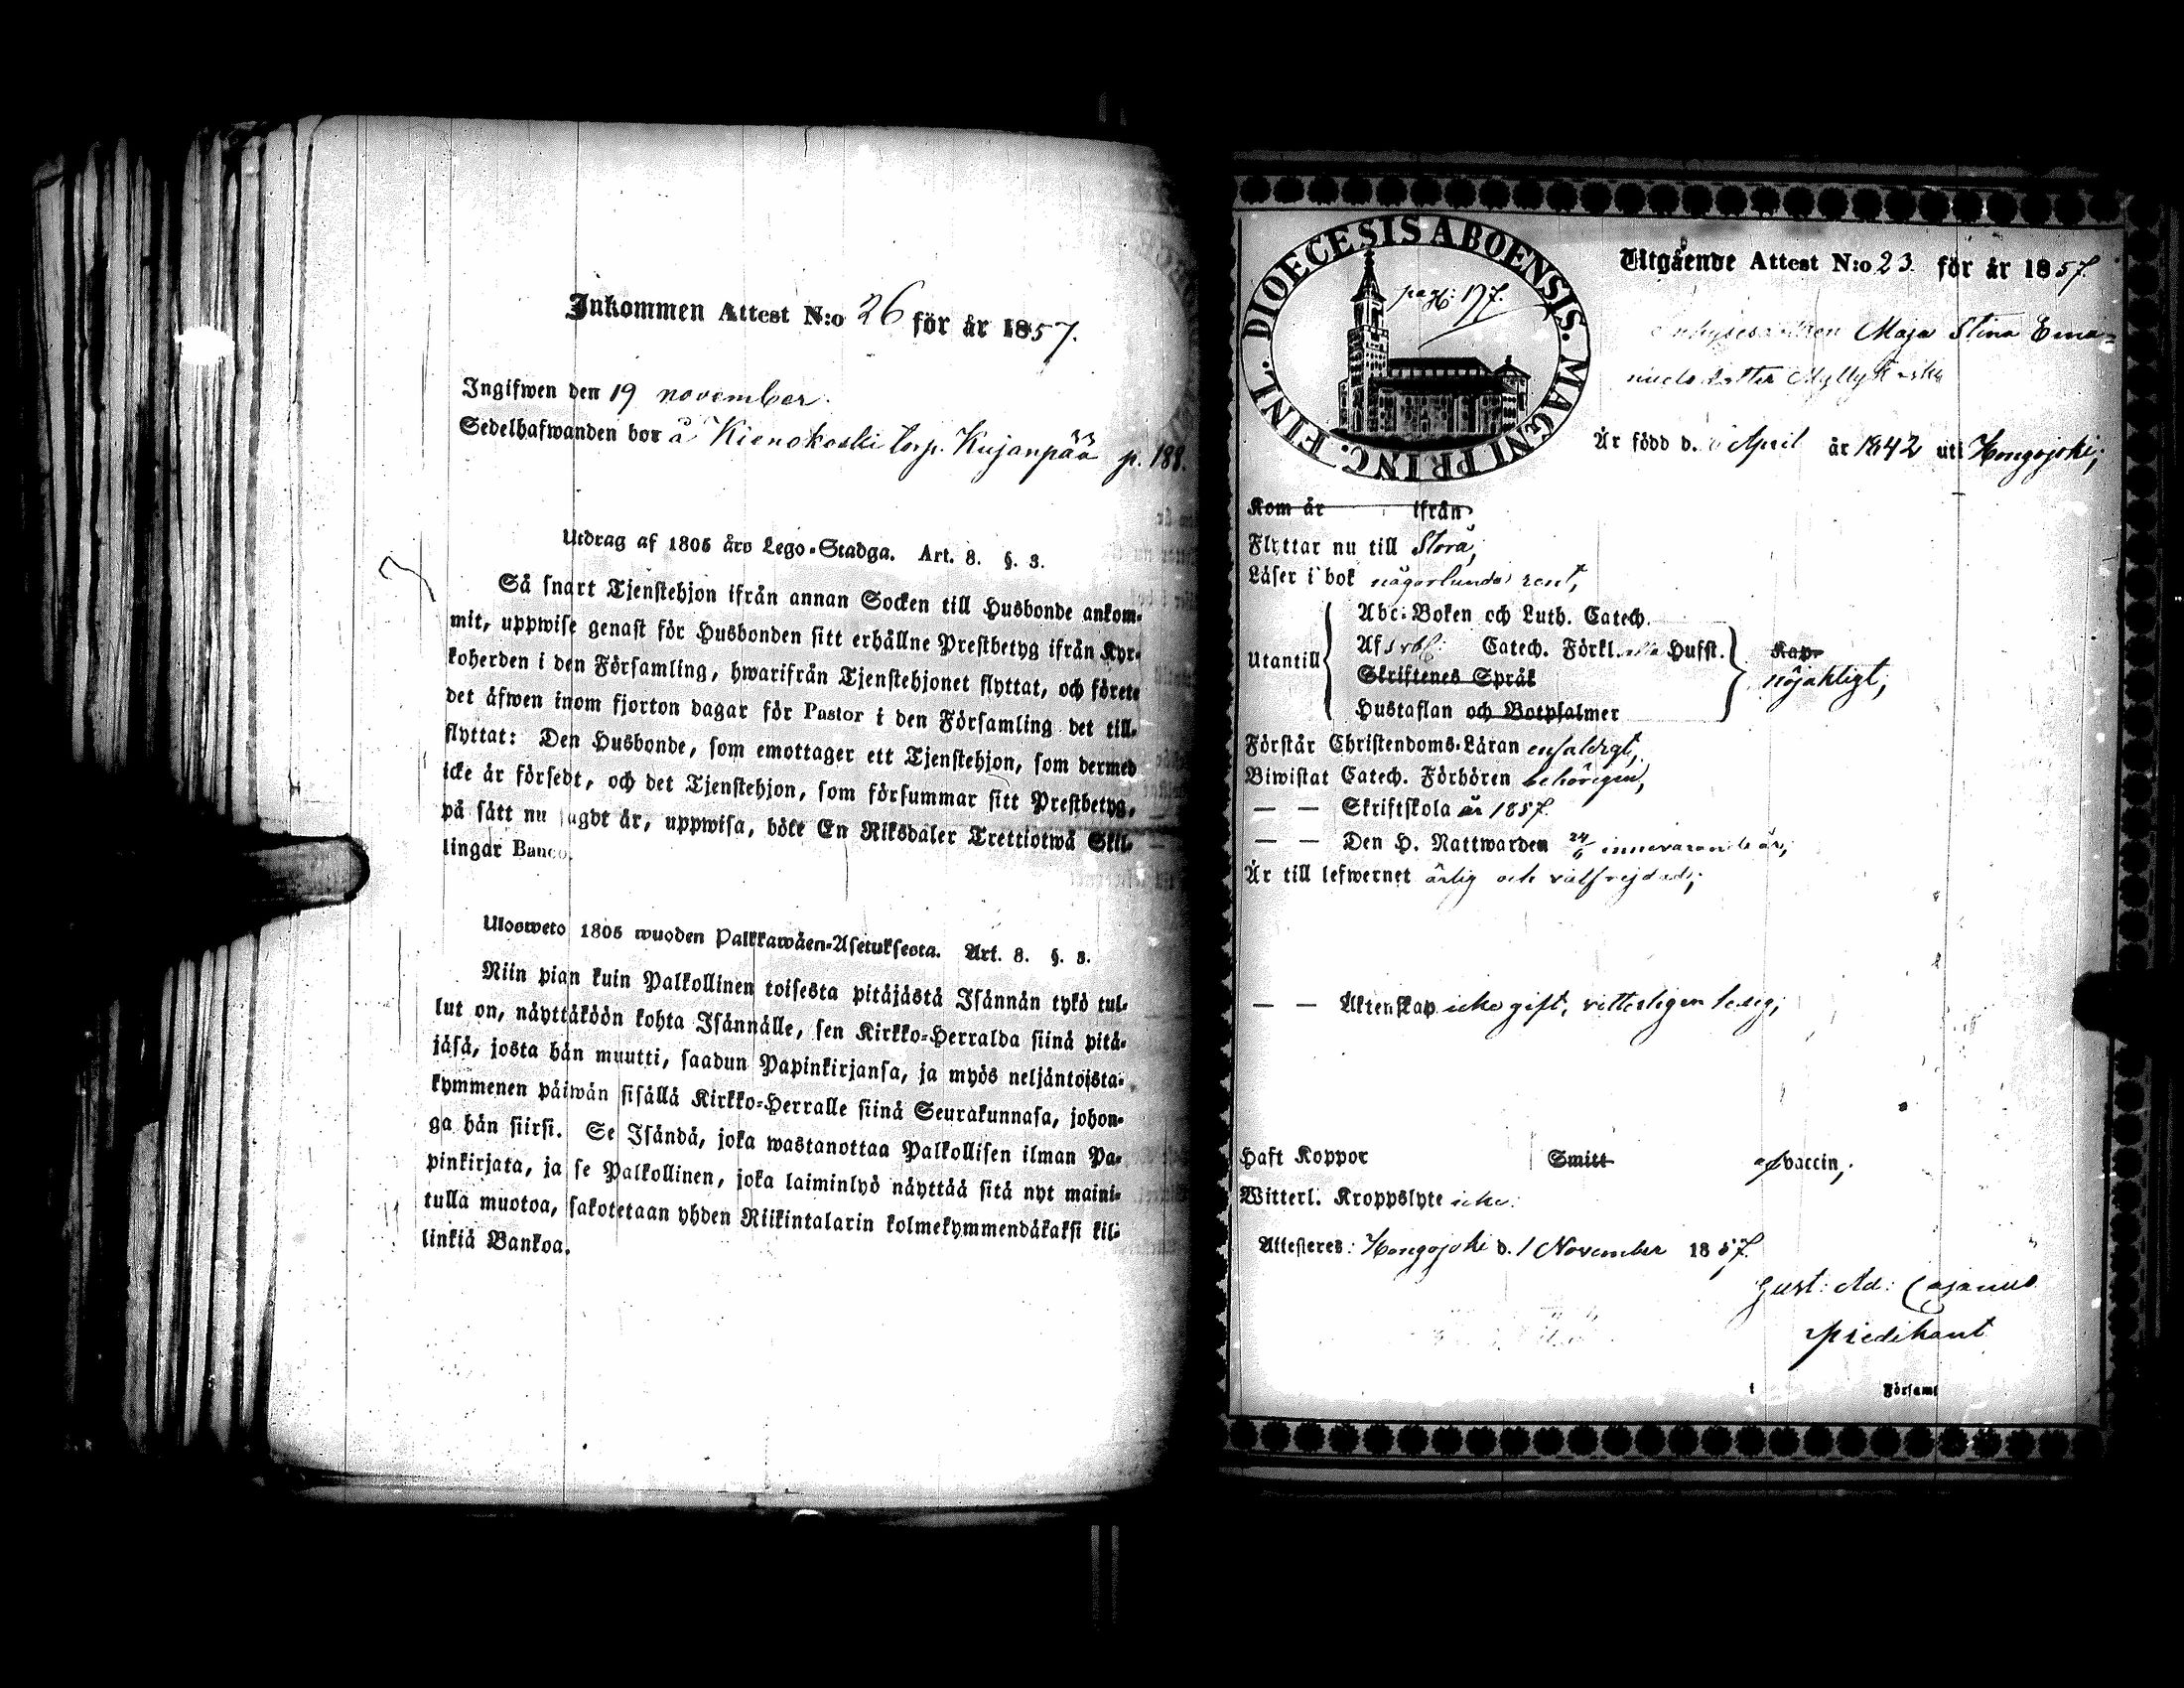 Inkommen Attest N:o 26 för år 1857.
Ingifwen den 19 november.
Sedelhafwanden bor å Kienokoski torp. Kujanpää p. 188.
Utdrag af 1805 års Lego-Stadga. Art. 8. §. 3.
Så snart Tjenstehjon ifrån annan Socken till Husbonde ankom-
mit, uppwise genast för Husbonden sitt erhållne Prestbetyg ifrån Kyr-
koherden i den Församling, hwarifrån Tjenstehjonet flyttat, och förete
det äfwen inom fjorton dagar för Pastor i den Församling det till-
flyttat: Den Husbonde, som emottager ett Tjenstehjon, som dermed
icke är försedt, och det Tjenstehjon, som försummar sitt Prestbetyg,
på sätt nu sagdt är, uppwisa, böte En Riksdaler Trettiotwå Skil-
lingar Banco.
Ulosweto 1805 wuoden Palkkawäen-Asetuksesta. Art. 8. §. 3.
Niin pian kuin Palkollinen toisesta pitäjästä Isännän tykö tul-
lut on, näyttäköön kohta Isännälle, sen Kirkko-Herralda siinä pitä-
jäsä, josta hän muutti, saadun Papinkirjansa, ja myös neljäntoista-
kymmenen päiwän sisällä Kirkko-Herralle siinä Seurakunnasa, johon-
ga hän siirsi. Se Isändä, joka wastanottaa Palkollisen ilman Pa-
pinkirjata, ja se Palkollinen, joka laiminlyö näyttää sitä nyt maini-
tulla muotoa, sakotetaan yhden Riikintalarin kolmekymmendäkaksi kil-
linkiä Bankoa.
DIOECESIS ABOENSIS. MAGNI PRINC. FINL.
pag: 197.
Utgående Attest N:o 23. för år 1857.
Maja Stina Ema-
nuelsdotter Myllykoski
År född d. April år 1842 uti Hongojoki,
Kom år ifrån
Flyttar nu till Storå,
Läser i bok någorlunda rent,
Utantill
Abc-Boken och Luth. Catech.
Af Catech. Förkl. Hufst.
Skriftenes Språk
Hustaflan och Botpsalmer
Kap.
nöjaktigt,
Förstår Christendoms-Läran enfaldigt,
Biwistat Catech. Förhören behörigen,
— — Skriftskola år 1857.
— — Den H. Nattwarden 24/6 innevarande år,
Är till lefwernet ärlig och välfrejdad,
— — Äktenskap icke gift, vitterligen ledig,
Haft Koppor Smitt af vaccin,
Witterl. Kroppslyte icke.
Attesteras: Hongojoki d. 1 November 1857.
Gust: Ad: Cajanus
Predikant
i Församl